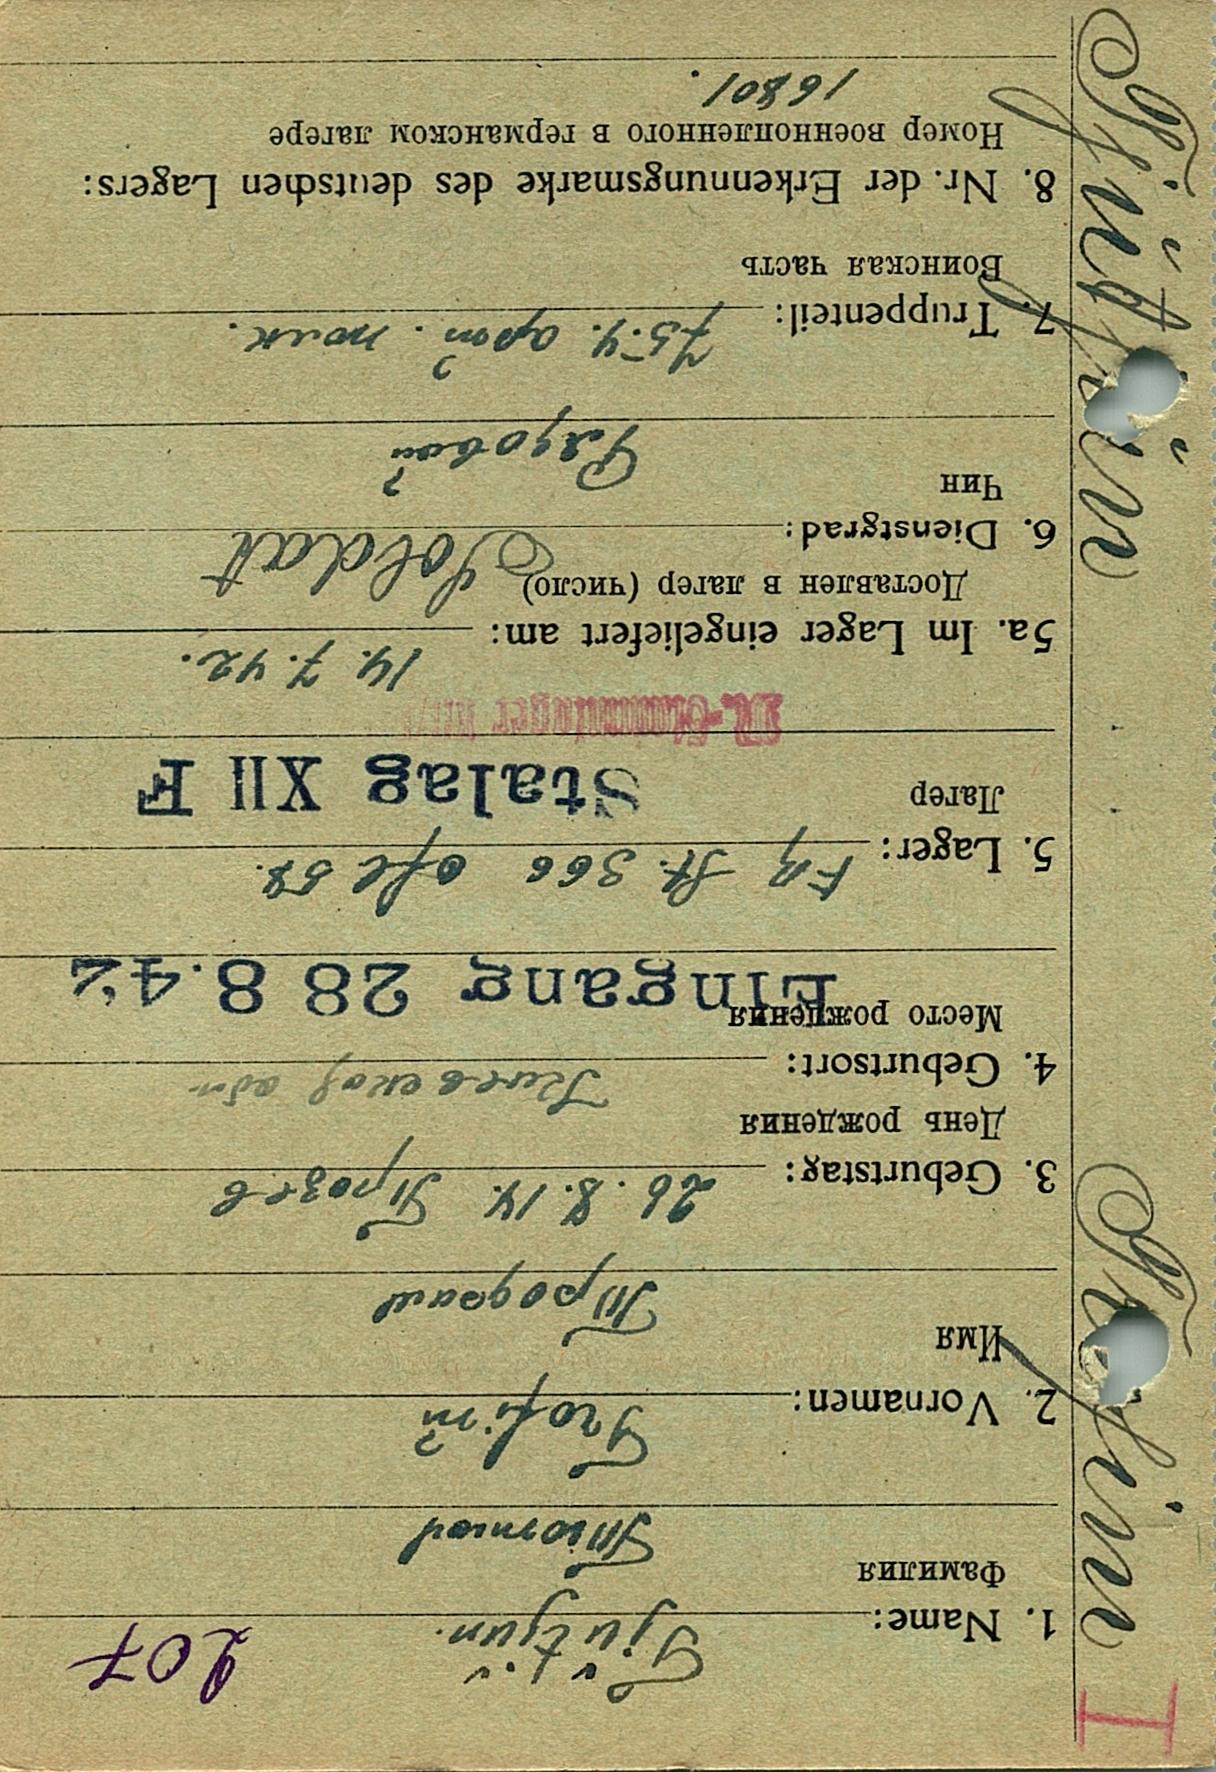 I
207
1. Name: Tjütjun.
Фамилия
Тютюн
2. Vornamen: Trofim
Имя
Трофим
3. Geburtstag: 26.8.14.
День рождения
4. Geburtsort: Киевская обл
Место рождения
Eingang 28 8.42
5. Lager: St. 366
Лагер
Stalag XII F
5a. Im Lager eingeliefert am: 14.7.42.
Доставлен в лагер (число)
6. Dienstgrad: Soldat
Чин
Рядовой
7. Truppenteil: 754. арт. полк.
Воинская часть
8. Nr. der Erkennungsmarke des deutschen Lagers:
Номер военнопленного в германском лагере
16801.
Tjütjün Trofim